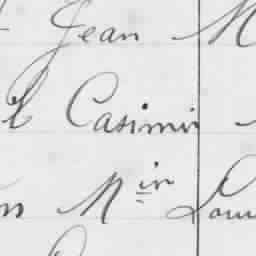 Jean M
l Casimir
n M in Lou